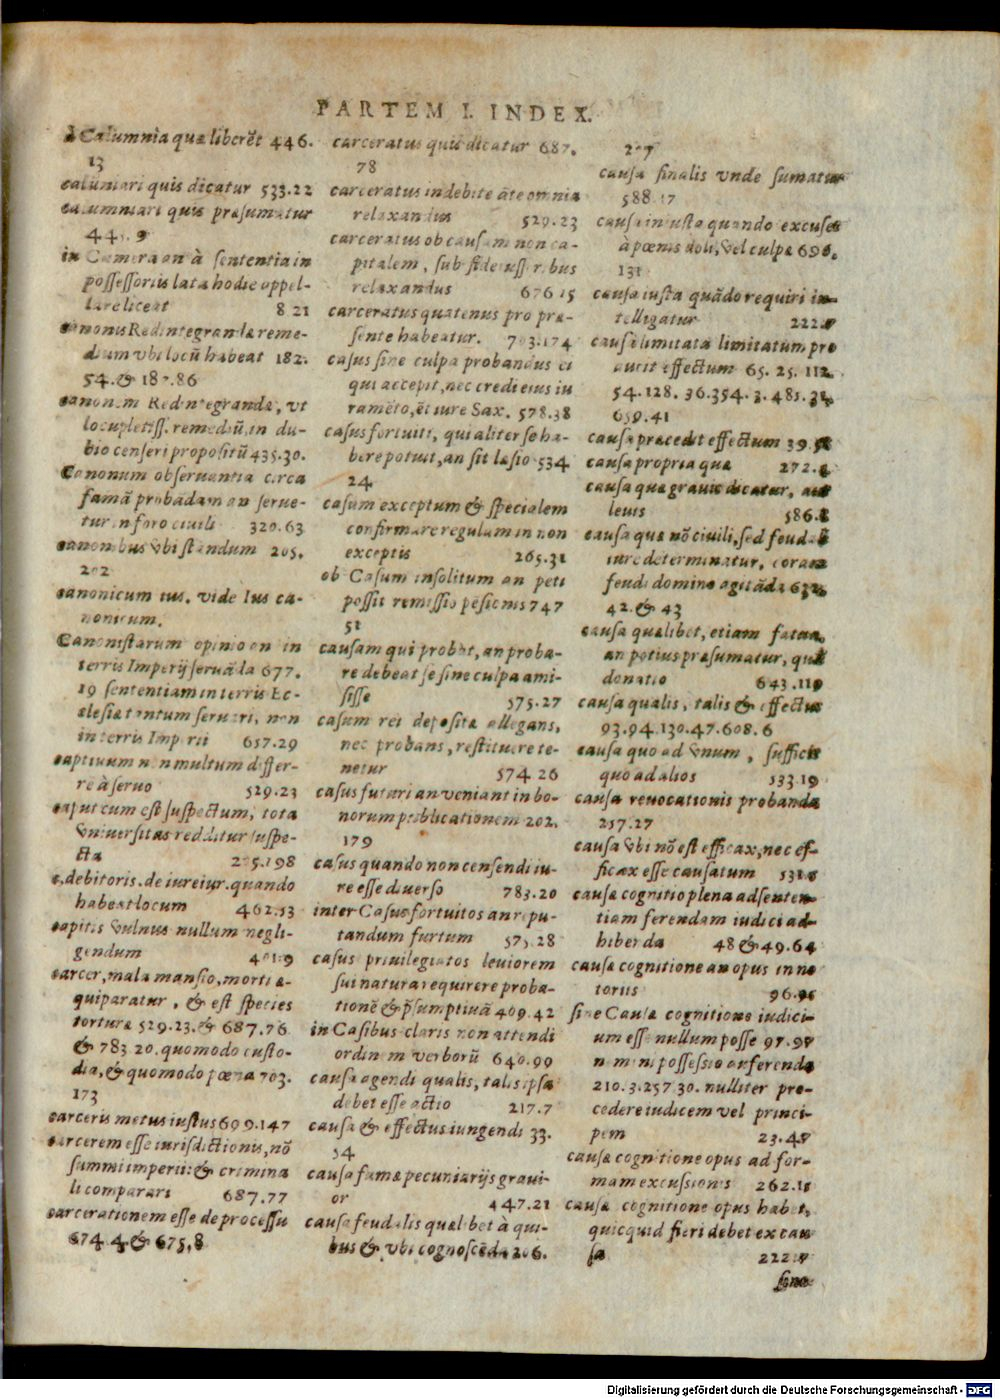 PARTEM I. INDEX.
à Calumnia quæ liberẽt 446.
13
calũniari quis dicatur 533.22
calumniari quis præsumatur
in Camera an à sententia in
possessoriis lata hodie appel-
lare liceat 8 21
canonis Redintegranda reme-
dium vbi locũ habeat 182.
54. & 187.86
canonem Redintegranda, vt
locupletiss. remediũ, in du-
bio censeri propositũ 435.30.
Canonum obseruantia circa
famã probãdam an serue-
tur in foro ciuili 320.63
canonibus vbi standum 205.
202
canonicum ius, vide Ius ca-
nonicum.
Canonistarum opinio an in
terris Imperij seruãda 677.
19 sententiam in terris Ec-
clesiæ tantum seruari, non
in terris Imperii 657.29
captiuum non multum differ-
re à seruo 529.23
caput cum est suspectum, tota
vniuersitas redditur suspe-
cta 205.198
c. debitoris. de iureiur. quando
habeat locum 462.53
capitis vulnus nullum negli-
gendum
carcer, mala mansio, morti æ-
quiparatur, & est species
torturæ 529.23. & 687.76.
& 783 20. quomodo custo-
dia, & quomodo pœna 703.
173
carceris metus iustus 699.147
carcerem esse iurisdictionis, nõ
summi imperii: & crimina
li comparari 687.77
carcerationem esse de processu
674.4 & 675.8
carceratus quis dicatur 687.
78
carceratus indebite ãte omnia
relaxandus 529.23
carceratus ob causam non ca-
pitalem, sub fideiussoribus
relaxandus 676 15
carceratus quatenus pro præ-
sente habeatur. 703.174
casus sine culpa probandus ei
qui accepit, nec credi eius iu
ramẽto, ẽt iure Sax. 578.38
casus fortuiti, qui aliter se ha-
bere potuit, an sit læsio 534
24
casum exceptum & specialem
confirmare regulam in non
exceptis 265.31
ob Casum insolitum an peti
possit remissio pẽsionis 747
51
causam qui probat, an proba-
re debeat se sine culpa ami-
sisse 575.27
casum rei depositæ allegans,
nec probans, restituere te-
netur 574 26
casus futuri an veniant in bo-
norum publicationem 202.
179
casus quando non censendi iu-
re esse diuerso 783.20
inter Casus fortuitos an repu-
tandum furtum 575.28
casus priuilegiatos leuiorem
sui natura requirere proba-
tionẽ & p̃sumptiuã 409.42
in Casibus claris non attendi
ordinem verborũ 640.99
causa agendi qualis, talis ipsa
debet esse actio 217.7
causa & effectus iungendi 33.
54
causa famæ pecuniarijs graui-
or 447.21
causa feudalis quælibet à qui-
bus & vbi cognoscẽda 206.
207
causa finalis vnde sumatur
588.17
causa iniusta quando excuset
à pœnis doli, vel culpæ 696.
131
causa iusta quãdo requiri in-
telligatur
causæ limitata limitatum pro
ducit effectum 65. 25. 112.
54. 128. 36. 354. 3. 485. 31.
659.41
causa præcedit effectum
causa propria quæ
causa quæ grauis dicatur, aut
leuis 586.8
causa quæ nõ ciuili, sed feudali
iure determinatur, coram
feudi domino agitãda
42. & 43
causa quælibet, etiam fatua,
an potius præsumatur, quã
donatio 643.119
causa qualis, talis & effectus
93.94.130.47.608.6
causa quo ad vnum, sufficit
quo ad alios 533.19
causa reuocationis probanda
257.27
causa vbi nõ est efficax, nec ef-
ficax esse causatum
causæ cognitio plena ad senten-
tiam ferendam iudici ad-
hibenda 48 & 49.64
causæ cognitione an opus in no
toriis
sine Causæ cognitione iudici-
um esse nullum posse
nemini possessio auferenda
210.3.257 30. nulliter pro-
cedere iudicem vel princi-
pem 23.47
causæ cognitione opus ad for-
mam excussionis
causæ cognitione opus habet,
quicquid fieri debet ex cau
sa
sine
Digitalisierung gefördert durch die Deutsche Forschungsgemeinschaft - DFG